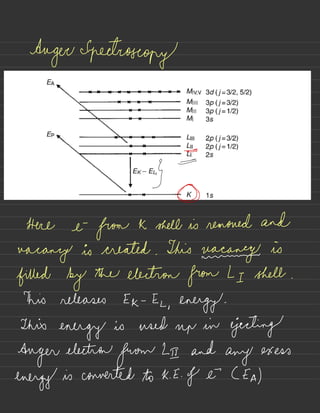 Auger Spectroscopy
EA
MIV,V 3d (j=3/2, 5/2)
MIII 3p (j=3/2)
MII 3p (j=1/2)
MI 3s
EP
LIII 2p (j=3/2)
LII 2p (j=1/2)
LI 2s
EK – EL1
K 1s
Here e⁻ from K shell is removed and
vacancy is created. This vacancy is
filled by the electron from L I shell.
This releases EK - EL, energy.
This energy is used up in ejecting
Auger electron from L II and any exess
energy is converted to K.E. of e⁻ (EA)